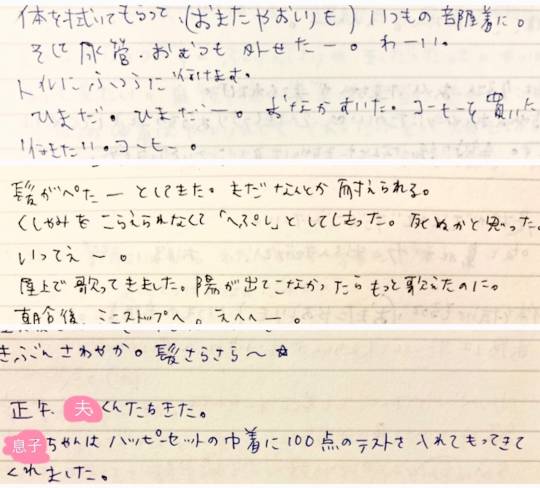 体を拭いてもらって、(おまたやおしりも) いつもの部屋着に。
そして尿管、おむつも外せたー。わーい。
トイレにふつうに行けます。
ひまだ。ひまだー。おなかすいた。コーヒーを買いに
行きたい。コーヒー。
髪がぺたーとしてきた。まだなんとか耐えられる。
くしゃみをこらえられなくて「へぷし」としてしまった。死ぬかと思った。
いってぇ〜。
屋上で歌ってきました。陽が出てこなかったらもっと歌えたのに。
朝食後、ミニストップへ。えへへー。
きぶんさわやか。髪さらさら〜☆
正午、夫くんたちきた。
息子ちゃんはハッピーセットの巾着に100点のテストを入れてもってきて
くれました。